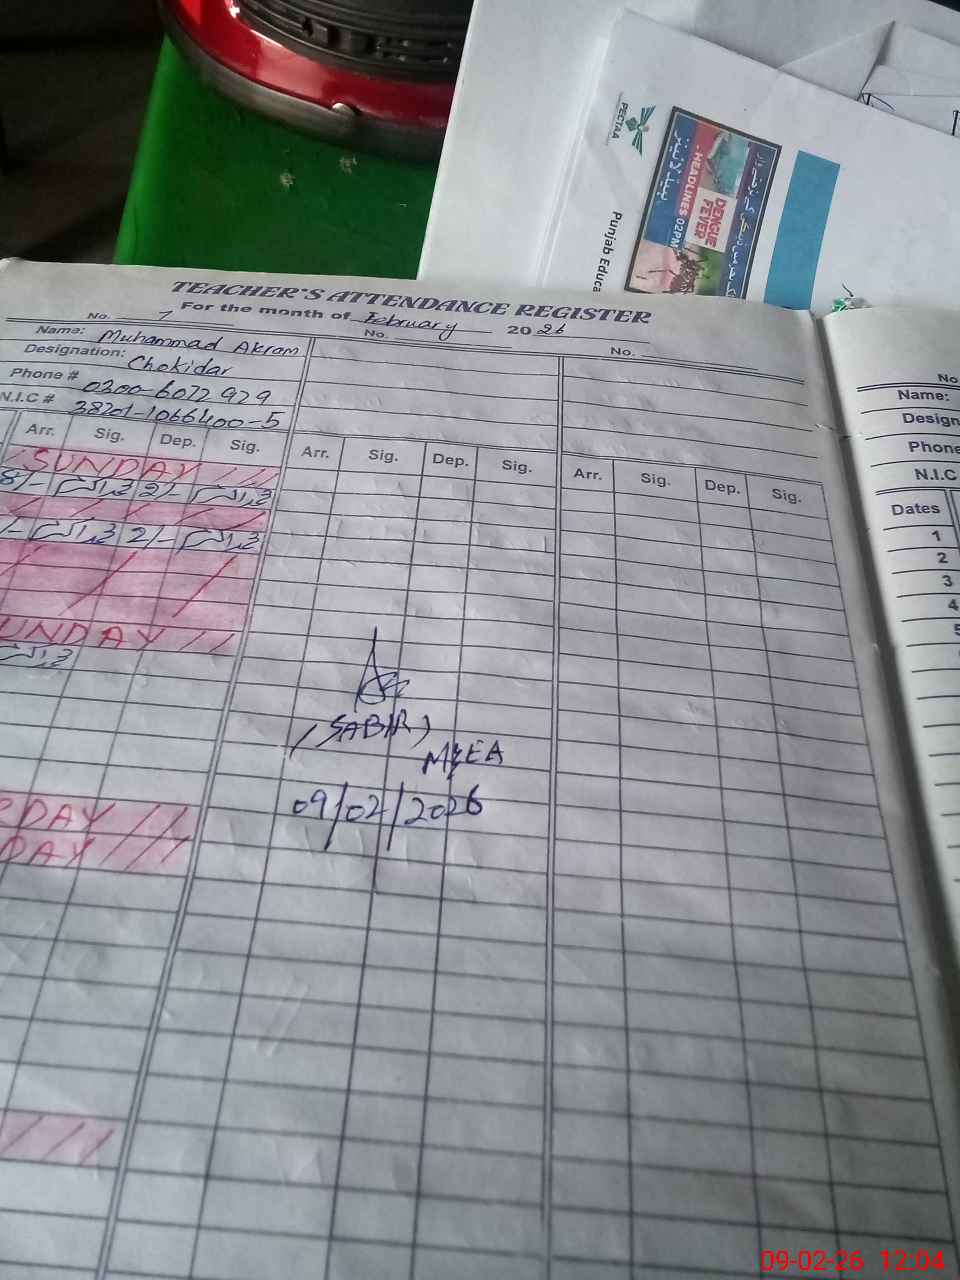 PECTAA
Punjab Educa
HEADLINES 02PM
DENGUE
FEVER
TEACHER'S ATTENDANCE REGISTER
For the month of February 2026
No. 7
No.
No.
Name: Muhammad Akram
Designation: Chokidar
Phone # 0300-6072929
N.I.C # 38201-1066400-5
Arr. Sig. Dep. Sig.
Arr. Sig. Dep. Sig.
Arr. Sig. Dep. Sig.
SUNDAY
8/- 2/-
/- 2/-
UNDAY
(SABIR)
M&EA
09/02/2026
RDAY
DAY
No
Name:
Design
Phone
N.I.C
Dates
1
2
3
4
5
09-02-26 12:04